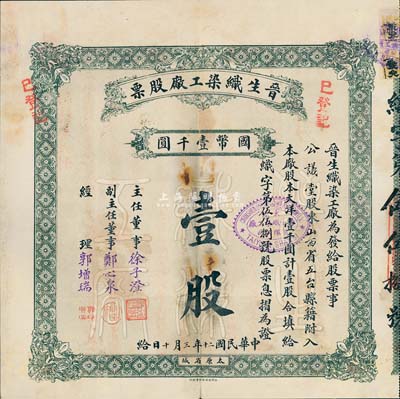 晋生織染工廠股票
國幣壹千圓
晋生織染工廠為發給股票事
公議堂股東山西省五台縣籍附入
本廠股本大洋壹千圓計壹股合填給
織字第伍伍捌號股票息摺為證
壹股
主任董事 徐子澄
副主任董事 鄭心泉
經理 郭增瑞
中華民國二十年三月十日給
太原省城
已登記